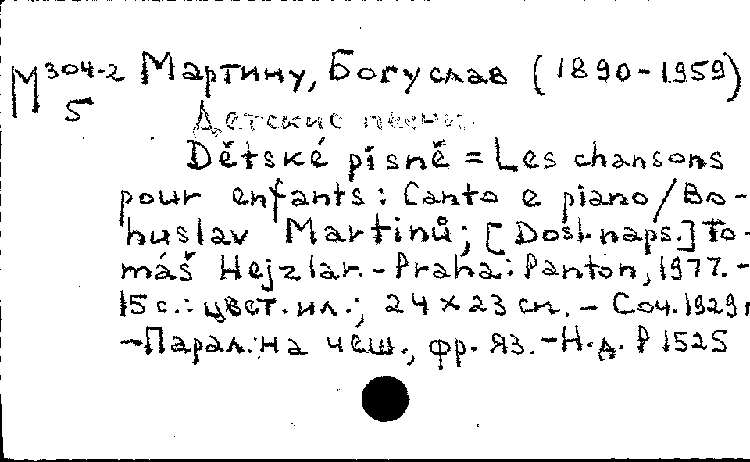 М 304-2 Мартину, Богуслав (1890-1959)
5
Детские песни.
Dětské písně = Les chansons
pour enfants : Canto e piano / Bo-
huslav Martinů; [Dosl. naps.] To-
máš Hejzlar. - Praha : Panton, 1977. -
15 с. : цвет. ил. ; 24 x 23 см. - Соч. 1929 г
- Парал. на чеш., фр. яз. - Н. д. P 1525